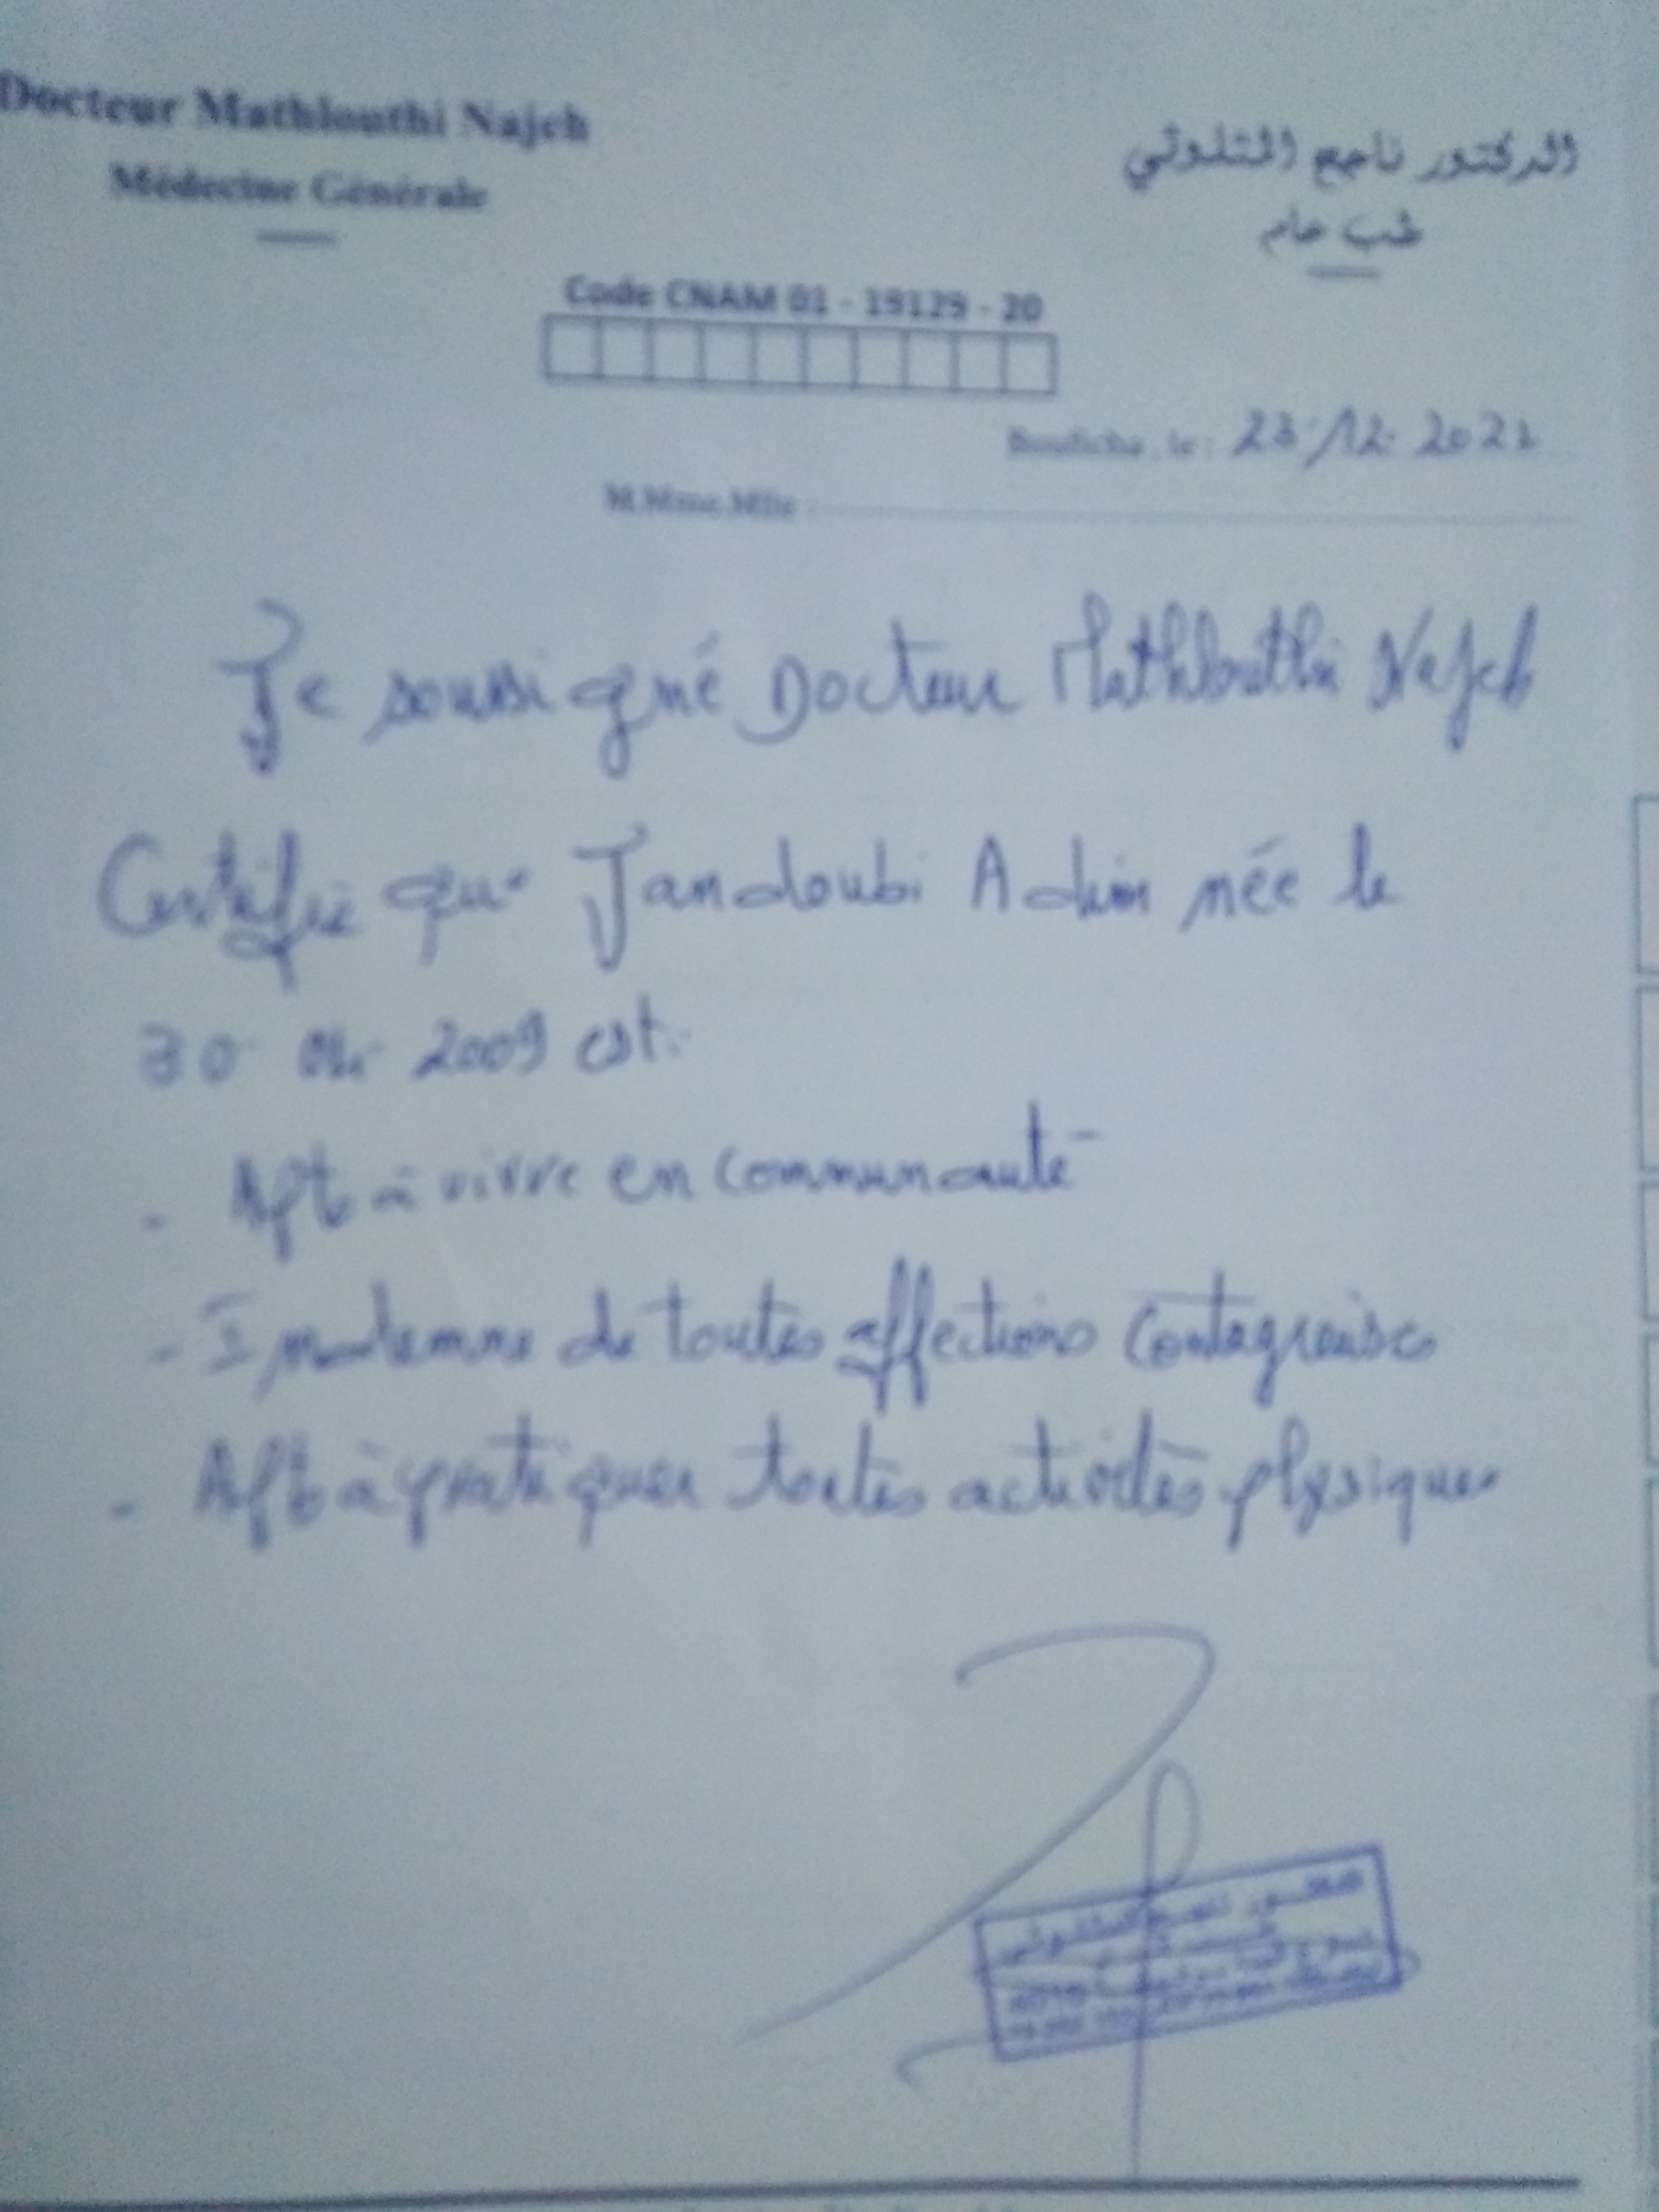 Docteur Mathlouthi Najeh
Médecine Générale
الدكتور ناجح المثلوثي
طب عام
Code CNAM 01 - 19129 - 20
Bouficha, le : 23/12 2021
M.Mme.Mlle :
Je soussigné Docteur Mathlouthi Najeh
Certifie que Jandoubi Adem née le
30 2009 est:
- Apte à vivre en communauté
- Indemne de toutes affections contagieuses
- Apte à pratiquer toutes activités physiques